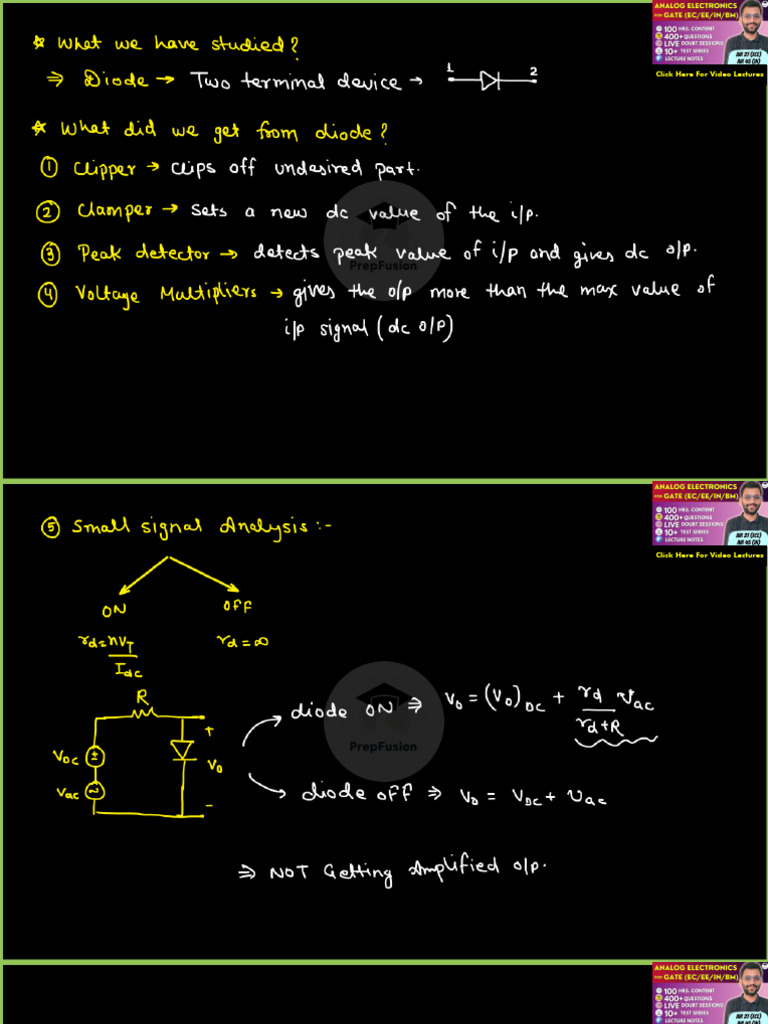 ANALOG ELECTRONICS
FOR GATE (EC/EE/IN/BM)
100 HRS. CONTENT
400+QUESTIONS
LIVE DOUBT SESSIONS
10+ TEST SERIES
LECTURE NOTES
AIR 27 (ECE)
AIR 45 (IN)
Click Here For Video Lectures
* What we have studied?
⇒ Diode → Two terminal device →
1 2
* What did we get from diode?
① Clipper → clips off undesired part.
② Clamper → sets a new dc value of the i/p.
③ Peak detector → detects peak value of i/p and gives dc o/p.
PrepFusion
④ Voltage Multipliers → gives the o/p more than the max value of
i/p signal (dc o/p)
ANALOG ELECTRONICS
FOR GATE (EC/EE/IN/BM)
100 HRS. CONTENT
400+QUESTIONS
LIVE DOUBT SESSIONS
10+ TEST SERIES
LECTURE NOTES
AIR 27 (ECE)
AIR 45 (IN)
Click Here For Video Lectures
⑤ Small signal Analysis :-
ON OFF
rd = nVT / Idc rd = ∞
R
VDC
Vac
+
V0
-
diode ON ⇒ V0 = (V0)DC + rd / rd+R vac
PrepFusion
diode off ⇒ V0 = VDC + vac
⇒ NOT Getting Amplified o/p.
ANALOG ELECTRONICS
FOR GATE (EC/EE/IN/BM)
100 HRS. CONTENT
400+QUESTIONS
LIVE DOUBT SESSIONS
10+ TEST SERIES
LECTURE NOTES
AIR 27 (ECE)